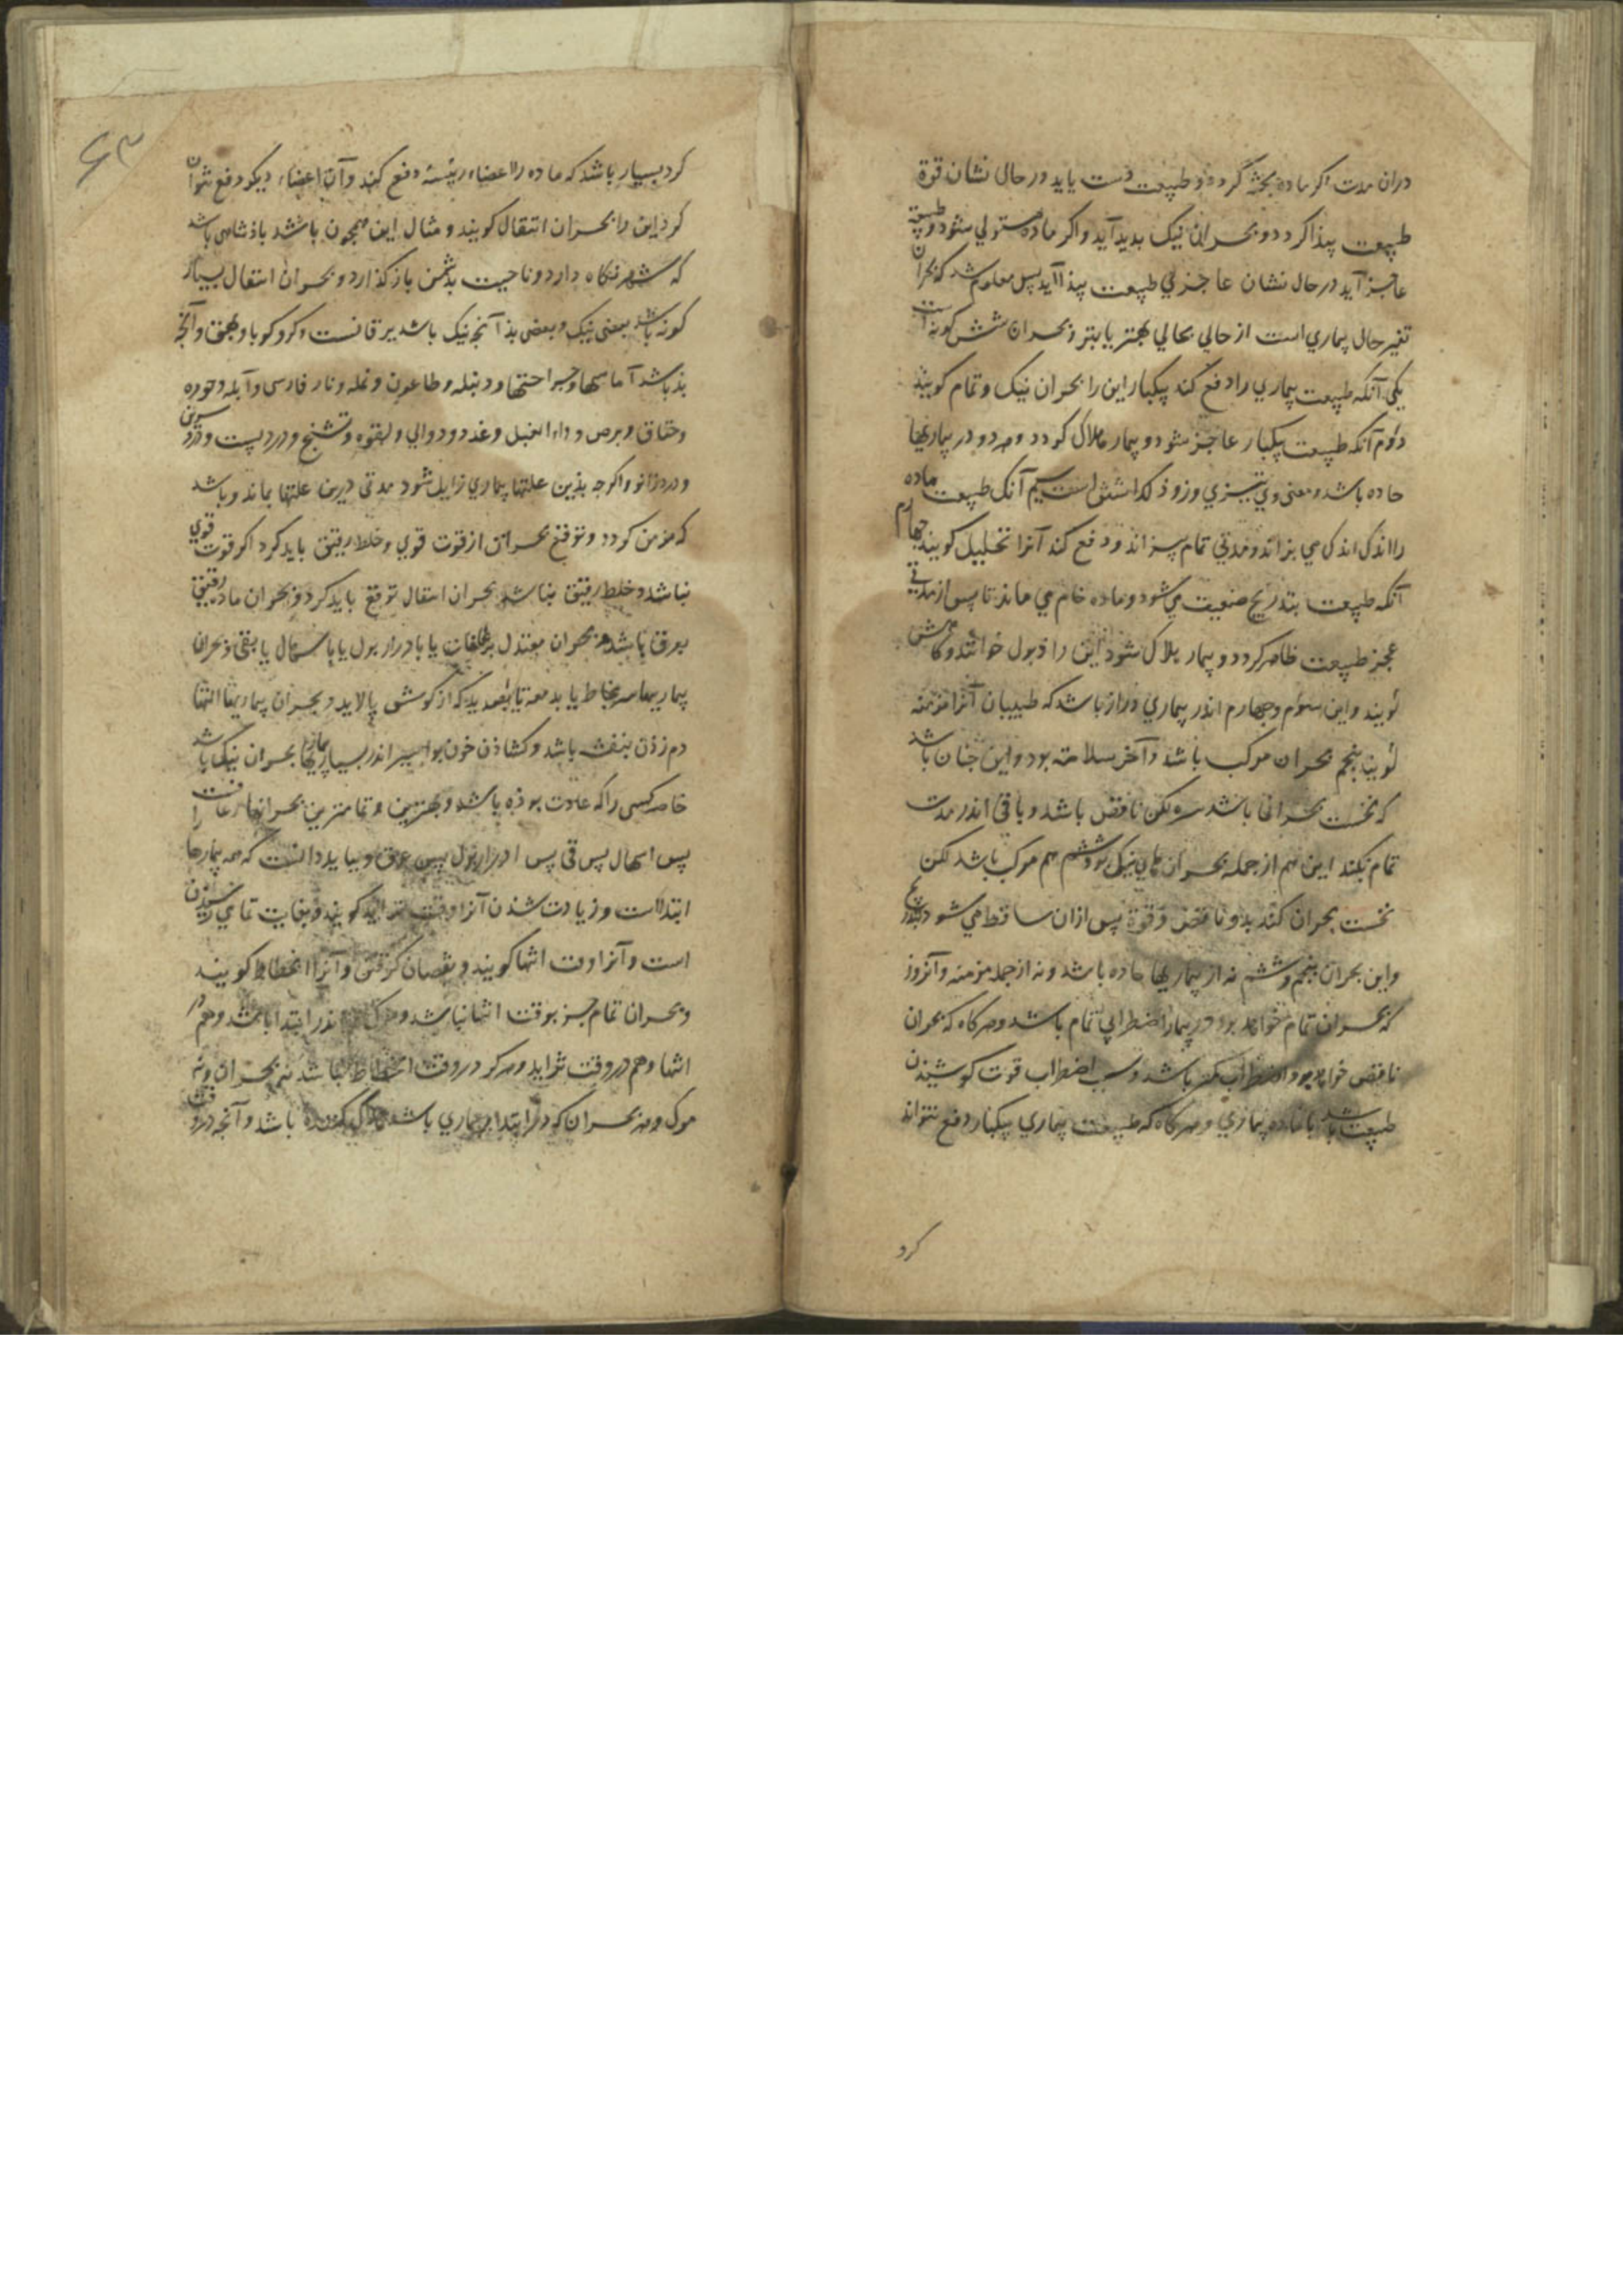 دران مدت اکر ماده پخته گردد و طبیعت دست یابد در حال نشان قوة
طبیعت پیذا کردد و بحران نیک بدید آید واکر ماده مستولي شود و طبیعة
عاجز آید در حال نشان عاجزي طبیعت پیذا آید پس معلوم شد که بحران
تغیر حال بیماري است از حالي بحالي بهتر یا بتر و بحران شش کونه است
یکي آنکه طبیعت بیماري را دفع کند بیکبار این را بحران نیک و تمام کویند
دوم آنکه طبیعت بیکبار عاجز شود و بیمار هلاک کردد و هر دو در بیماریها
حاده باشد و معنی وي تیزي وزوذ است سیم آنک طبیعت ماده
را اندک اندک مي پزاند و مدتي تمام بپزاند و دفع کند آنرا تحلیل کویند چهارم
آنکه طبیعت بتدریج ضعیف مي شود و ماده خام مي ماند تا پس از مدتي
عجز طبیعت ظاهر کردد و بیمار هلاک شود این را ذبول خوانند و کاهش
کویند و این سوم و جهارم اندر بیماري دراز باشد که طبیبان آنرا مزمنه
کویند پنجم بحران مرکب باشد و آخر سلامته بود و این جنان باشد
که نخست بحرانی باشد نیک ولکن ناقص باشد و باقی اندر مدت
تمام بکند این هم از جمله بحران نیک بود ششم هم مرکب باشد لکن
نخست بحران کند بد و ناقص و قوة پس ازان ساقط مي شود بتدریج
واین بحران پنجم و ششم نه از بیماریها حاده باشد و نه از جمله مزمنه و آنروز
که بحران تمام خواهد بود در بیمار اضطرابی تمام باشد و هرکاه که بحران
ناقص خواهد بود اضطراب کمتر باشد و سبب اضطراب قوت کوشیدن
طبیعت باشد با ماده بیماري و هرکاه که طبیعت بیماري بیکبار دفع نتواند
کرد
۶۳
کرد بسیار باشد که ماده را از اعضاء رئیسه دفع کند و از اعضاء دیکر دفع نتوان
کرد این را بحران انتقال کویند و مثال این همجون باشد باذشاهی باشد
که شهر نکاه دارد و ناحیت بدشمن باز کذارد و بحران انتقال بسیار
کونه باشد بعضی نیک و بعضی بذ آنچ نیک باشد یرقانست و کر و کوبا و بهق و آنچ
بذ باشد آماسها و جراحتها و دنبله و طاعون و نمله و نار فارسی و آبله و جوره
و خناق و برص و داء الفیل و غدد و دوالي و لقوه و تشنج و درد پشت و درد سرین
و درد زانو و اکر جه بذین علتها بیماري زایل شود مدتی دیرین علتها بماند و باشد
که مزمن کردد و توقع بحران از قوت قوي و خلط رقیق باید کرد اکر قوت قوي
نباشد و خلط رقیق نباشد بحران انتقال توقع باید کرد و بحران ماده رقیق
بعرق باشد و بحران معتدل یا بادرار بول یا باسهال یا بقی و بحران
بیماریها سر بمخاط یا بدمعه یا که از کوش پالاید و بحران بیماریها التها
دم زدن بنفث باشد و کشاذن خون بواسیر اندر بسیار بیماریها بحران نیک باشد
خاصه کسی را که عادت بوذه باشد و بهترین و تمامترین بحرانها رعافست
پس اسهال پس قی پس ادرار بول پس عرق و بباید دانست که همه بیماریها را
ابتداست و زیادت شذن آنرا وقت تزاید کویند و بغایت تمامي رسیدن
است و آنرا وقت انتها کویند و نقصان کرفتن و آنرا انحطاط کویند
و بحران تمام جز بوقت انتها نباشد و مرک اندر ابتدا باشد و هم در
انتها و هم در وقت تزاید و هرکز در وقت انحطاط نباشد نه بحران و نه
مرک و هر بحران که در ابتداء بیماري باشد هلاک کننده باشد و آنچه در وقت